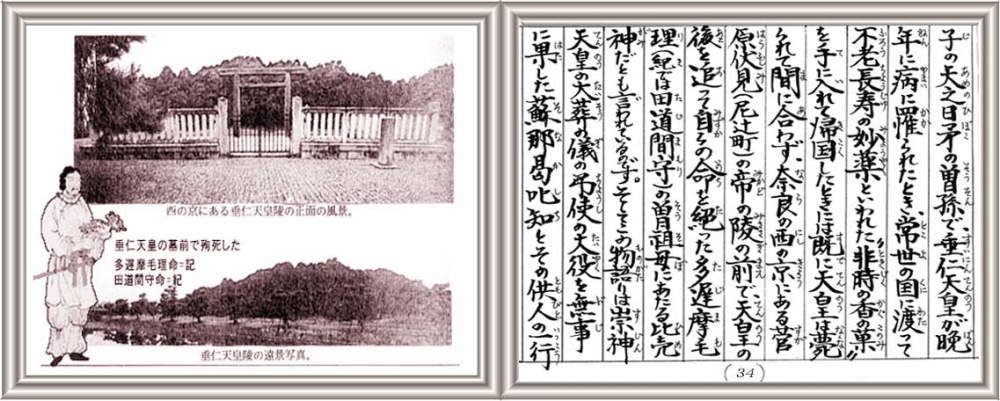 西の京にある垂仁天皇陵の正面の風景。
垂仁天皇の墓前で殉死した
多遅摩毛理命=記
田道間守命=記
垂仁天皇陵の遠景写真。
子の天之日矛の曽孫で、垂仁天皇が晩
年に病に罹られたとき、常世の国に渡って
不老長寿の妙薬といわれた〝非時の香の菓〟
を手に入れて帰国したときには既に天皇は薨
られて間に合わず、奈良の西の京にある菅
原伏見(尼辻町)の帝の陵の前で天皇の
後を追って自らの命を絶った多遅摩毛
理(紀では田道間守)の曽祖母にあたる比売
神だとも言れているのです。そしてこの物語りは崇神
天皇の大葬の儀の弔使の大役を無事
に果した蘇那曷叱知とその供人の一行
(34)